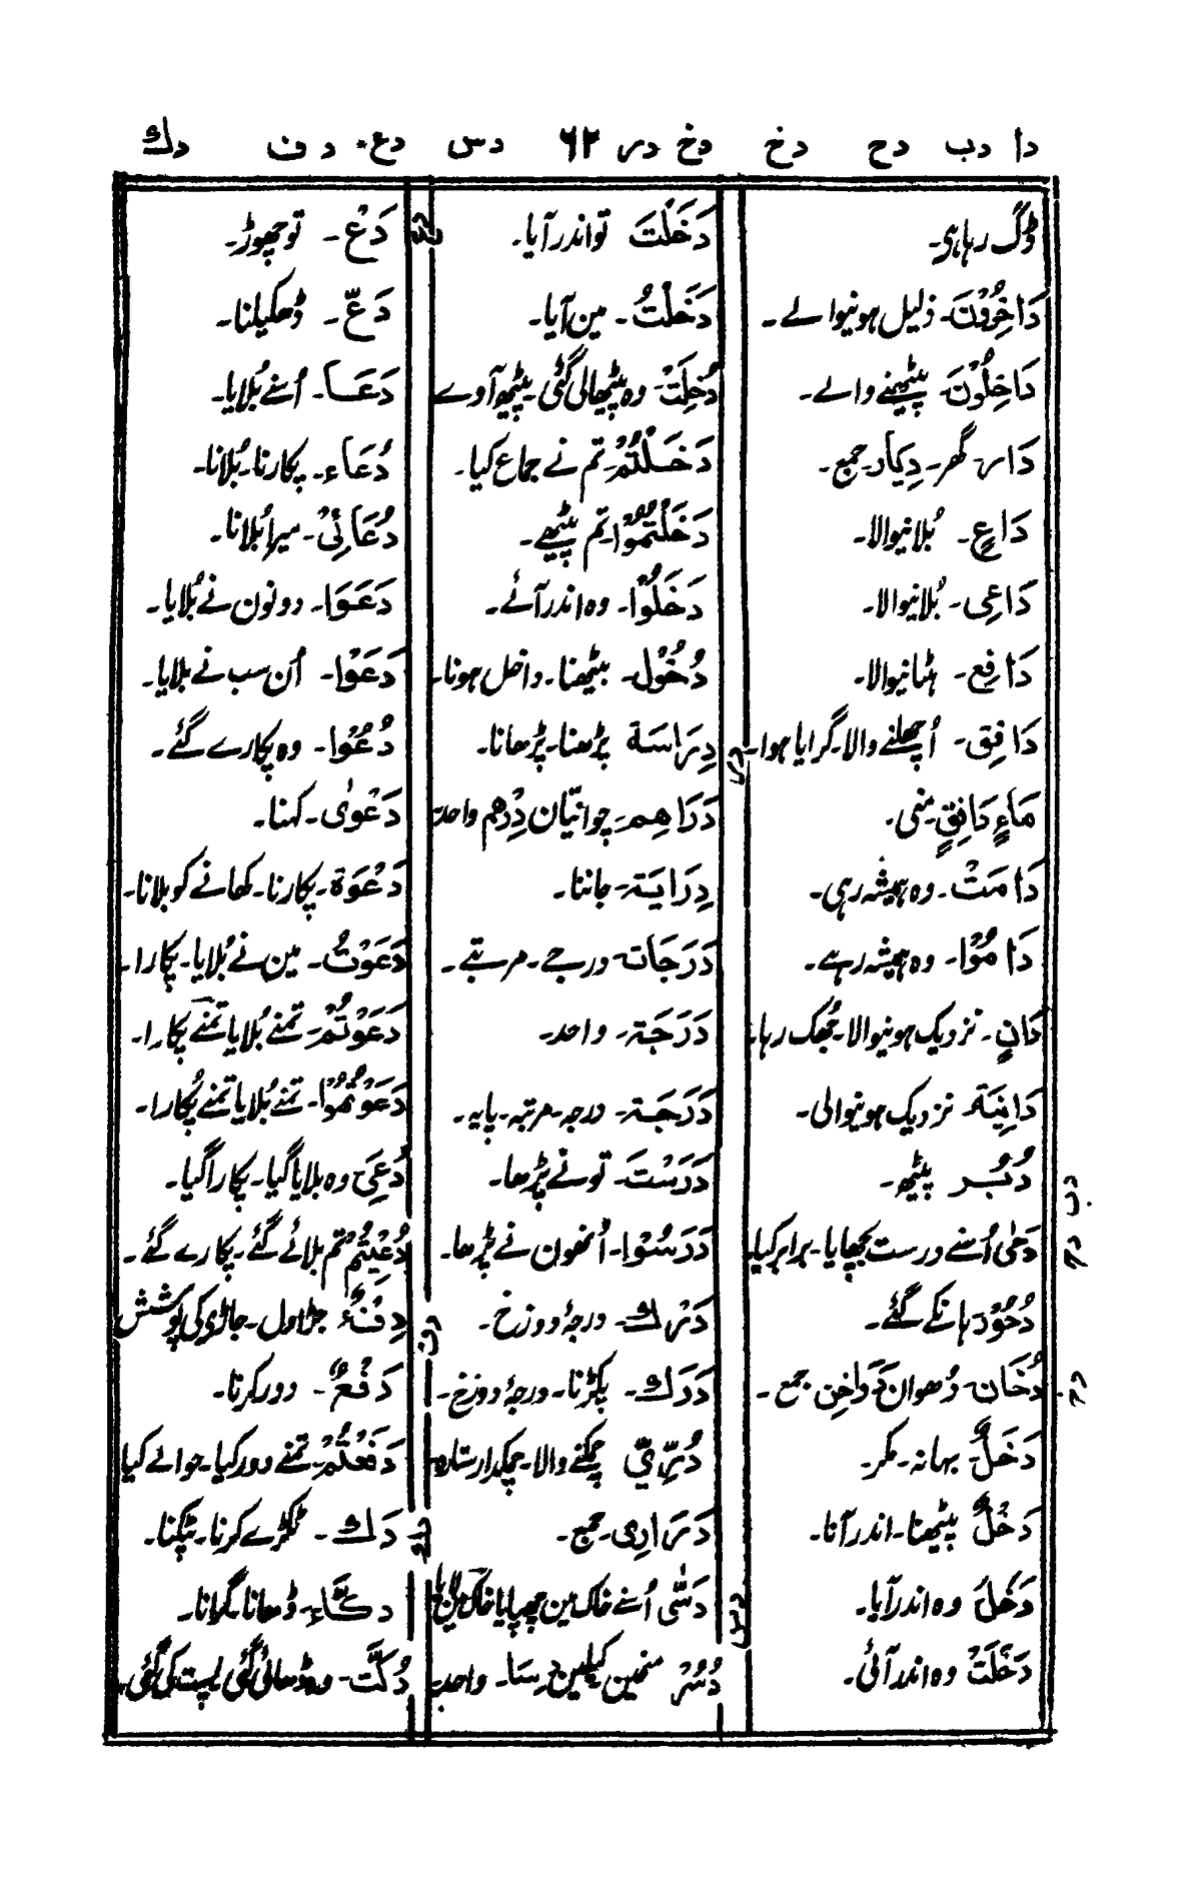 دا دب دح دخ دخ در ۶۲ دس دع دف دك
ڈگ رہا ہی۔
دَاخِرُوْنَ۔ ذلیل ہونیوالے۔
دَاخِلُوْنَ۔ پیٹھنے والے۔
دَار۔ گھر۔ دِیَار۔ جمع۔
دَاعٍ۔ بُلانیوالا۔
دَاعِی۔ بُلانیوالا۔
دَافِع۔ ہٹانیوالا۔
دَافِق۔ اُچھلنے والا۔ گرایا ہوا۔
مَاءٍ دَافِقٍ۔ منی۔
دَامَتْ۔ وہ ہمیشہ رہی۔
دَامُوْا۔ وہ ہمیشہ رہے۔
دَانٍ۔ نزدیک ہونیوالا۔ جُھک رہا۔
دَانِیَة نزدیک ہونیوالی۔
دب
دُبُر پیٹھ۔
دح
دَحٰی اُسنے درست بچھایا۔ برابر کیا
دُحُوْر ہانکے گئے۔
دخ
دُخَان۔ دُھوان دَوَاخِن جمع۔
دَخَلٌ۔ بہانہ۔ مکر۔
دَخْلٌ پیٹھنا۔ اندر آنا۔
دَخَلَ وہ اندر آیا۔
دَخَلَتْ وہ اندر آئی۔
دَخَلْتَ تو اندر آیا۔
دَخَلْتُ۔ مین آیا۔
دُخِلَتْ۔ وہ پیٹھالی گئی۔ پیٹھ آوے
دَخَلْتُمْ۔ تم نے جماع کیا۔
دَخَلْتُمُوْا۔ تم پیٹھے۔
دَخَلُوْا۔ وہ اندر آئے۔
دُخُوْل۔ بیٹھنا۔ داخل ہونا۔
در
دِرَاسَة پڑھنا۔ پڑھانا۔
دَرَاهِم۔ چوانیّان دِرْهم واحد
دِرَایَة۔ جاننا۔
دَرَجَات۔ درجے۔ مرتبے۔
دَرَجَة۔ واحد۔
دَرَجَة۔ درجہ۔ مرتبہ۔ پایہ۔
دَرَسْتَ۔ تو نے پڑھا۔
دَرَسُوْا۔ اُنھون نے پڑھا۔
دَرْك۔ درجۂ دوزخ۔
دَرَك۔ پکڑنا۔ درجۂ دوزخ۔
دُرِّيّ چمکنے والا۔ چمکدار ستارہ
دَرَارِی۔ جمع۔
دس
دَسّٰی اُسنے خاک مین چھپایا خاک مین
دُسُر منحین کیلین دِسَا۔ واحد
دع
دَعْ۔ تو چھوڑ۔
دَعّ۔ ڈھکیلنا۔
دَعَا۔ اُسنے بُلایا۔
دُعَاء۔ پکارنا۔ بُلانا۔
دُعَائِیْ۔ میرا بُلانا۔
دَعَوَا۔ دونون نے بُلایا۔
دَعَوْا۔ اُن سب نے بلایا۔
دُعُوْا۔ وہ پکارے گئے۔
دَعْوٰی۔ کہنا۔
دَعْوَة۔ پکارنا۔ کھانے کو بلانا۔
دَعَوْتُ۔ مین نے بُلایا۔ پکارا۔
دَعَوْتُمْ۔ تمنے بُلایا تمنے پکارا۔
دَعَوْتُمُوْا۔ تمنے بُلایا تمنے پُکارا۔
دُعِیَ وہ بلایا گیا۔ پکارا گیا۔
دُعِیْتُمْ تم بلائے گئے۔ پکارے گئے۔
دف
دِفْءٌ جڑاول۔ جاڑی کی پوشش
دَفْعٌ۔ دور کرنا۔
دَفَعْتُمْ۔ تمنے دور کیا۔ حوالے کیا
دك
دَك۔ ٹکڑے کرنا۔ پٹکنا۔
دكَّاء۔ ڈھانا۔ گرانا۔
دُكَّت۔ وہ ڈھائی گئی پست کی گئی۔